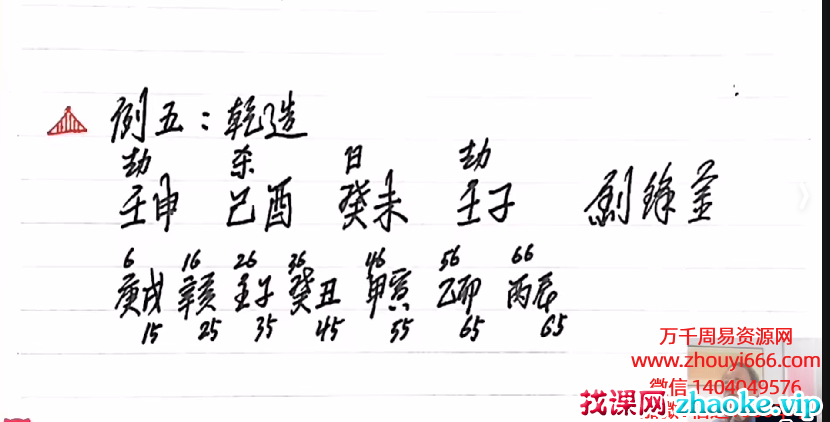 例五：乾造
劫 杀 日 劫
壬申 己酉 癸未 壬子 剑锋金
6 16 26 36 46 56 66
庚戌 辛亥 壬子 癸丑 甲寅 乙卯 丙辰
15 25 35 45 55 65 65
万千周易资源网
www.zhouyi666.com
微信1404049576
找课网zhaoke.vip